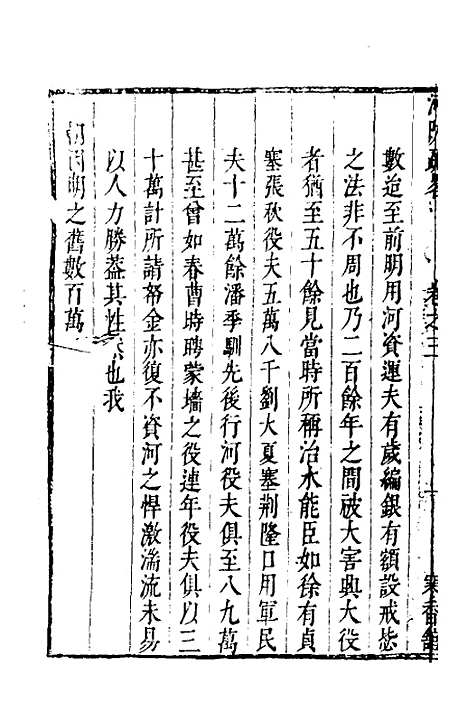 卷之三
寒香館
數迨至前明用河資運夫有歲編銀有額設戒恙
之法非不周也乃二百餘年之間被大害興大役
者猶至五十餘見當時所稱治水能臣如徐有貞
塞張秋役夫五萬八千劉大夏塞荆隆口用軍民
夫十二萬餘潘季馴先後行河役夫俱至八九萬
甚至曾如春曹時聘蒙墻之役連年役夫俱以三
十萬計所請帑金亦復不資河之悍激湍流未易
以人力勝葢其性然也我
朝因明之舊數百萬